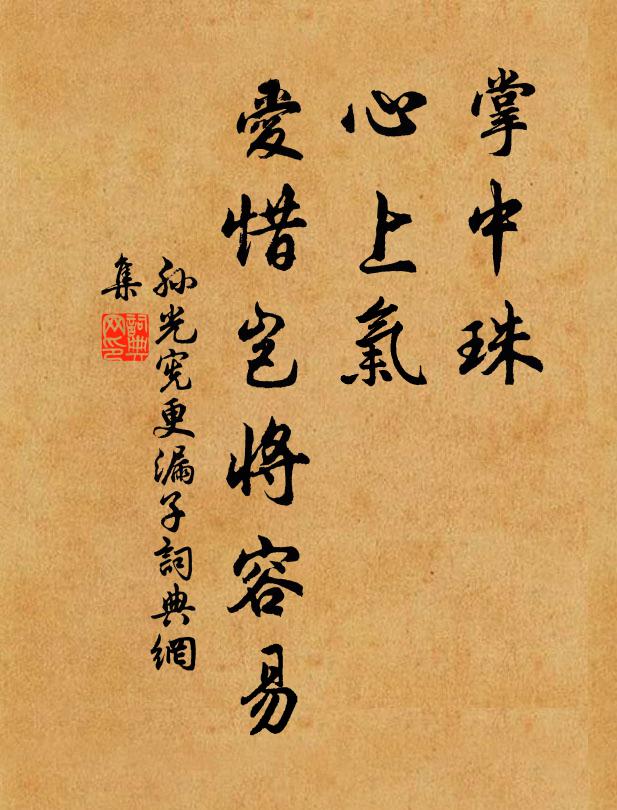 掌中珠
心上氣
愛惜豈將容易
孫光憲更漏子詞典網
集
詞典
网印